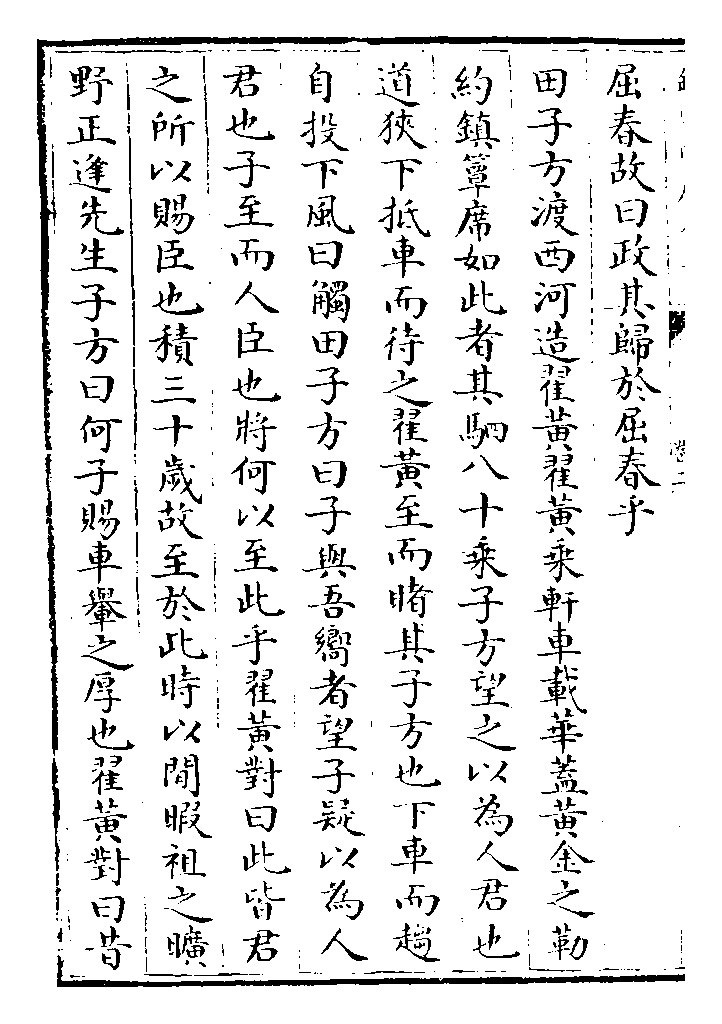 卷二
屈春故曰政其歸於屈春乎
田子方渡西河造翟黃翟黃乘軒車載華蓋黃金之勒
約鎮簟席如此者其駟八十乘子方望之以為人君也
道狹下抵車而待之翟黃至而睹其子方也下車而趨
自投下風曰觸田子方曰子與吾嚮者望子疑以為人
君也子至而人臣也將何以至此乎翟黃對曰此皆君
之所以賜臣也積三十歲故至於此時以閒暇祖之曠
野正逢先生子方曰何子賜車轝之厚也翟黃對曰昔